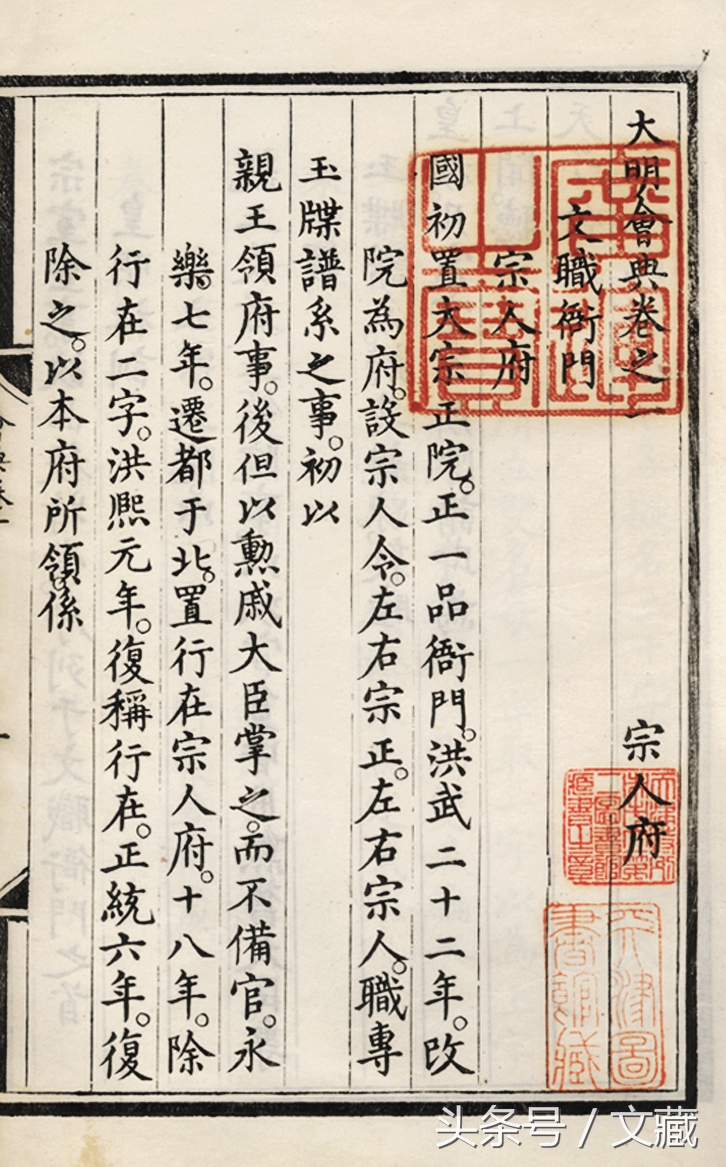 大明會典卷之一 宗人府
文職衙門
宗人府
國初置大宗正院。正一品衙門。洪武二十二年。改
院為府。設宗人令。左右宗正。左右宗人。職專
玉牒譜系之事。初以
親王領府事。後但以勳戚大臣掌之。而不備官。永
樂七年。遷都于北。置行在宗人府。十八年。除
行在二字。洪熙元年。復稱行在。正統六年。復
除之。以本府所領。係
天津圖
書館藏
头条号 / 文藏